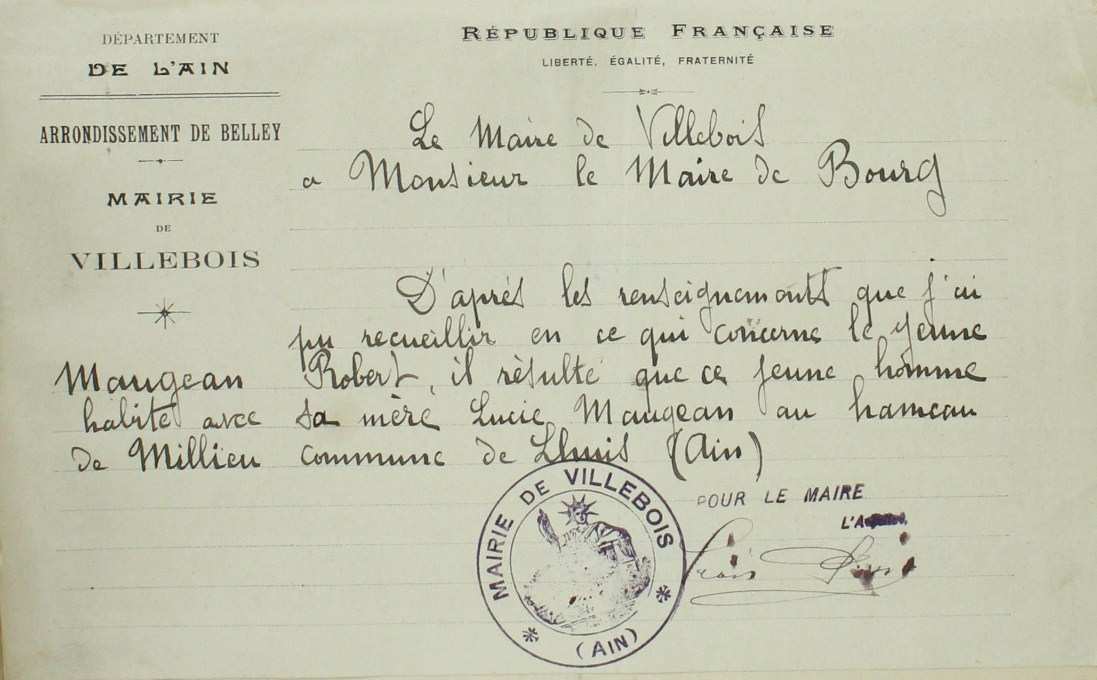 DÉPARTEMENT
DE L'AIN
ARRONDISSEMENT DE BELLEY
MAIRIE
DE
VILLEBOIS
RÉPUBLIQUE FRANÇAISE
LIBERTÉ, ÉGALITÉ, FRATERNITÉ
Le Maire de Villebois
a Monsieur le Maire de Bourg
D'après les renseignements que j'ai
pu recueillir en ce qui concerne le jeune
Maugean Robert, il résulte que ce jeune homme
habite avec sa mère Lucie Maugean au hameau
de Millieu commune de Lhuis (Ain)
MAIRIE DE VILLEBOIS
(AIN)
POUR LE MAIRE